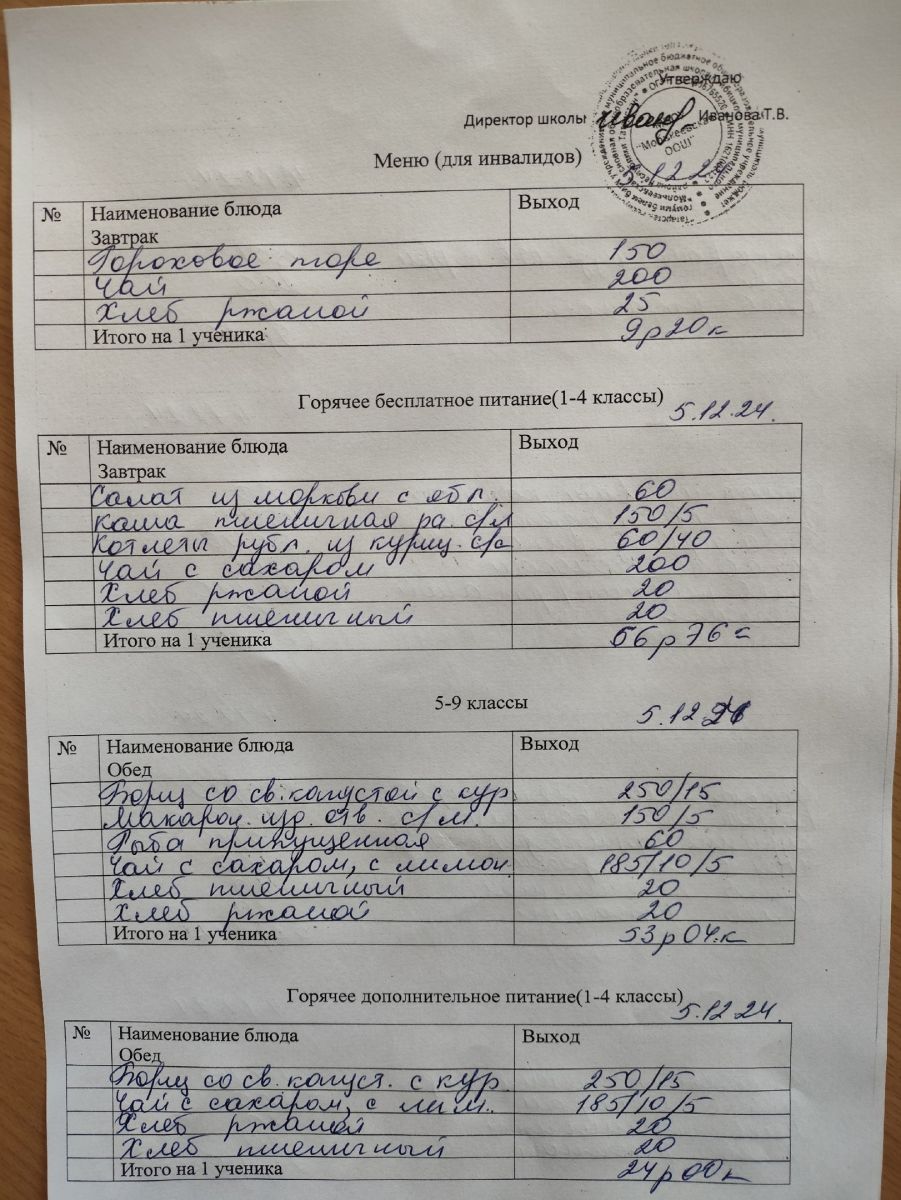 Утверждаю
Директор школы Иванова Т.В.
Меню (для инвалидов)
5.12.24
№ Наименование блюда Выход
Завтрак
Гороховое пюре 150
Чай 200
Хлеб ржаной 25
Итого на 1 ученика 9р20к
Горячее бесплатное питание(1-4 классы) 5.12.24.
№ Наименование блюда Выход
Завтрак
Салат из моркови с ябл. 60
Каша пшеничная ра. с/м 150/5
Котлеты рубл. из куриц. с/с 60/40
Чай с сахаром 200
Хлеб ржаной 20
Хлеб пшеничный 20
Итого на 1 ученика 66р76к
5-9 классы 5.12.24
№ Наименование блюда Выход
Обед
Борщ со св. капустой с кур 250/15
Макарон. изд. отв. с/м. 150/5
Рыба припущенная 60
Чай с сахаром, с лимон. 185/10/5
Хлеб пшеничный 20
Хлеб ржаной 20
Итого на 1 ученика 53р04.к
Горячее дополнительное питание(1-4 классы) 5.12.24.
№ Наименование блюда Выход
Обед
Борщ со св. капуст. с кур. 250/15
Чай с сахаром, с лим. 185/10/5
Хлеб ржаной 20
Хлеб пшеничный 20
Итого на 1 ученика 24р00к